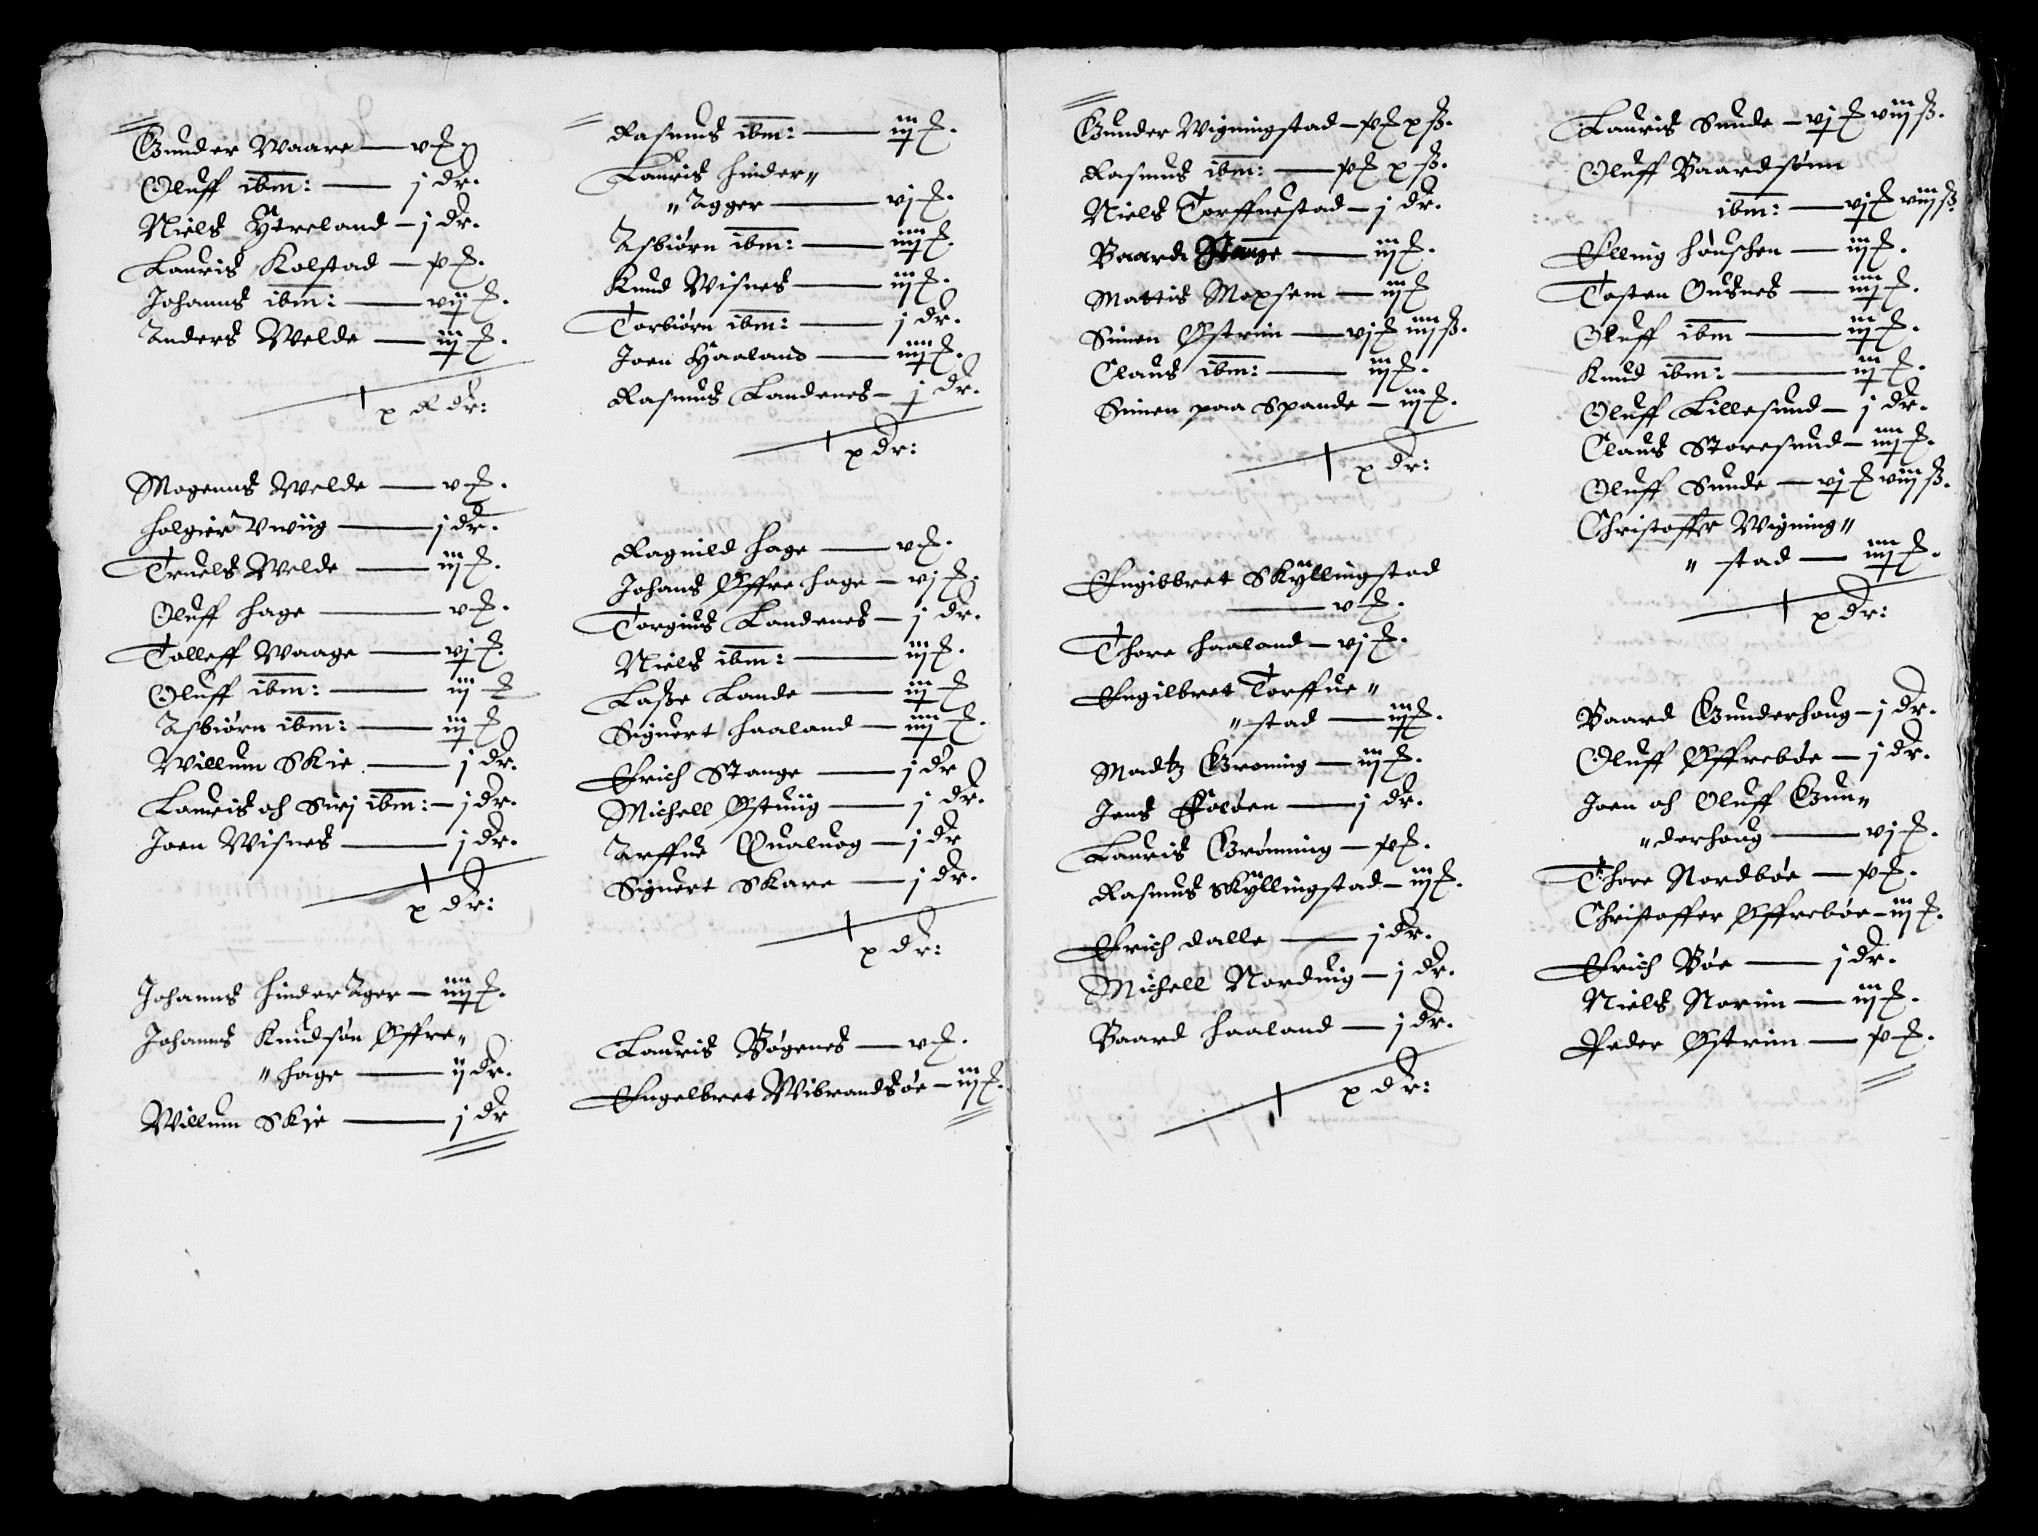 Gunder Waare — v ₰.
Oluff ibm: — j dr.
Niels Ytreland — j dr.
Lauris Kolstad — p ₰.
Johanns ibm: — vij ₰.
Anders Welde — iij ₰.
x R dr:
Mogenns Welde — v ₰.
Holgier Vwiig — j dr.
Truels Welde — iij ₰.
Oluff Hage — v ₰.
Tolleff Waage — vj ₰.
Oluff ibm: — iij ₰
Asbiørn ibm: — iij ₰
Willum Skie — j dr.
Lauris och Sirj ibm: — j dr.
Joen Wisnes — j dr.
x dr:
Johanns Hinder Ager — iiij ₰.
Johanns Knudsøn Øffre„
„ Hage — ij dr.
Willum Skie — j dr
Rasmus ibm: — iij ₰.
Lauris Hinder„
„Agger — vj ₰.
Asbiørn ibm: — iiij ₰.
Knud Wisnes — iij ₰.
Torbiørn ibm: — j dr.
Joen Haaland — iiij ₰.
Rasmus Landenes — j dr.
x dr:
Ragnild Hage — v ₰.
Johans Øffre Hage — vj ₰.
Torgius Landenes — j dr.
Niels ibm: — iij ₰.
Laße Lande — iij ₰
Siguert Haaland — iiij ₰.
Erich Stange — j dr
Michell Østuiig — j dr.
Arffue Qualuog — j dr
Siguert Skare — j dr.
x dr:
Lauris Bøgenes — v ₰.
Engelbret Wibrandsøe — iij ₰.
Gunder Wigningstad — p ₰ x ß.
Rasmus ibm: — p ₰ x ß.
Niels Torffuestad — j dr.
Baard Stange — iij ₰.
Mattis Moxsem — iij ₰
Simen Østrim — vj ₰ iiij ß.
Claus ibm: — iij ₰.
Simen paa Spande — iij ₰.
x dr:
Engibbret Skÿllingstad
— v ₰.
Thore Haaland — vj ₰.
Engilbret Torffue „
„ stad — iij ₰.
Madtz Groning — iij ₰.
Jens Foløen — j dr.
Lauris Grønning — p ₰.
Rasmus Skÿllingstad — iij ₰.
Erich Dalle — j dr.
Michell Norduig — j dr.
Baard Haaland — j dr.
x dr:
Lauris Sunde — vj ₰ viij ß.
Oluff Baardsønn
ibm: — vj ₰ viij ß.
Elling Høuschen — iij ₰.
Tosten Ousnes — iiij ₰.
Oluff ibm — iij ₰.
Knud ibm: — iij ₰.
Oluff Lillesund — j dr.
Claus Storesund — iiij ₰.
Oluff Sunde — vj ₰ viij ß.
Christoffer Wigning „
„ stad — iiij ₰.
x dr:
Baard Gunderhoug — j dr.
Oluff Øffrebøe — j dr.
Joen och Oluff Gun„
„derhoug — vj ₰.
Thore Nordbøe — p ₰.
Christoffer Øffrebøe — iij ₰.
Erich Bøe — j dr.
Niels Norim — iij ₰.
Peder Østrim — p ₰.